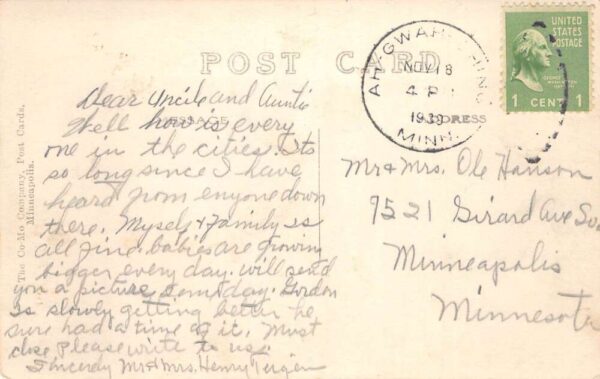 POST CARD
Dear Uncle and Auntie
MESSAGE
Well how is every
one in the cities. Its
so long since I have
heard from enyone down
there. Myself & Family is
all fine. babies are growing
bigger every day. will send
you a picture somtday. Gordon
is slowly getting better he
sure had a time of it. Must
close Please write to us.
Sincerly Mr & Mrs. Henry
The Co-Mo Company, Post Cards,
Minneapolis.
AH-GWAH-CHING
NOV 18
4 P
1939
MINN.
UNITED
STATES
POSTAGE
1 CENT 1
ADDRESS
Mr & Mrs. Ole Hanson
9521 Girard Ave So.
Minneapolis
Minnesota